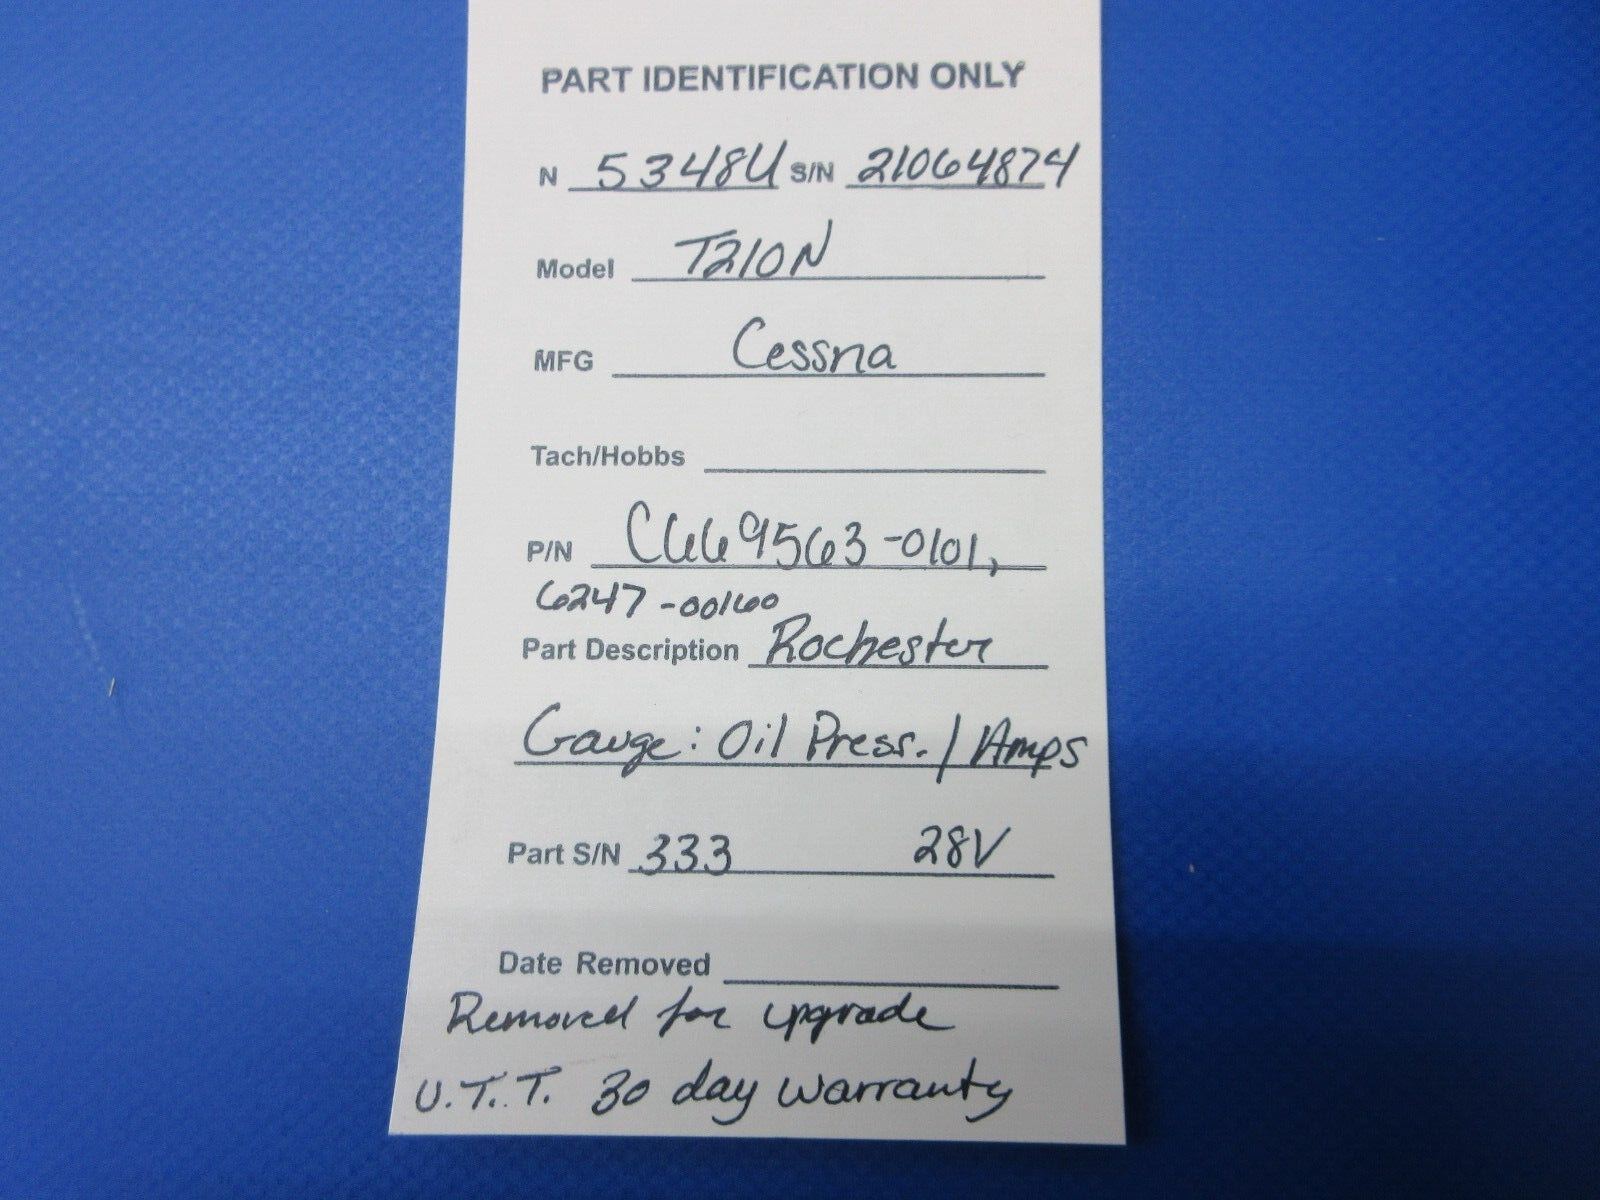 PART IDENTIFICATION ONLY
N 5348U S/N 21064874
Model T210N
MFG Cessna
Tach/Hobbs
P/N C669563-0101,
6247-00160
Part Description Rochester
Gauge: Oil Press. / Amps
Part S/N 333 28V
Date Removed
Removed for upgrade
U.T.T. 30 day warranty